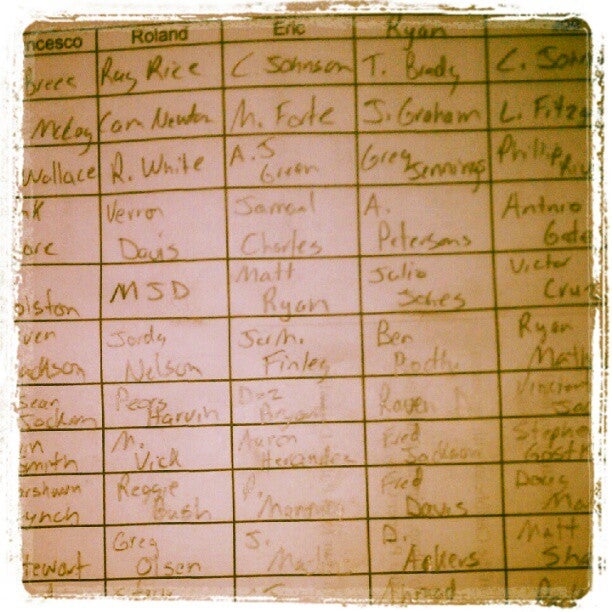 ncesco Roland Eric Ryan
Brees Ray Rice C. Johnson T. Brady C. John
McCoy Cam Newton M. Forte J. Graham L. Fitzg
Wallace R. White A.J Green Greg Jennings Phillip Riv
Vernon Davis Jamaal Charles A. Petersons Antonio Gate
olston MJD Matt Ryan Julio Jones Victor Cruz
ven Jackson Jordy Nelson Jerm. Finley Ben Roeth Ryan Math
Sean Jackson Percy Harvin Dez Bryant Raven D Vincent Jac
Smith M. Vick Aaron Hernandez Fred Jackson Stephen Gostk
arshawn ynch Reggie Bush P. Manning Fred Davis Doug Ma
tewart Greg Olsen J. D. Akers Matt Sha
Steve J. Ahmad